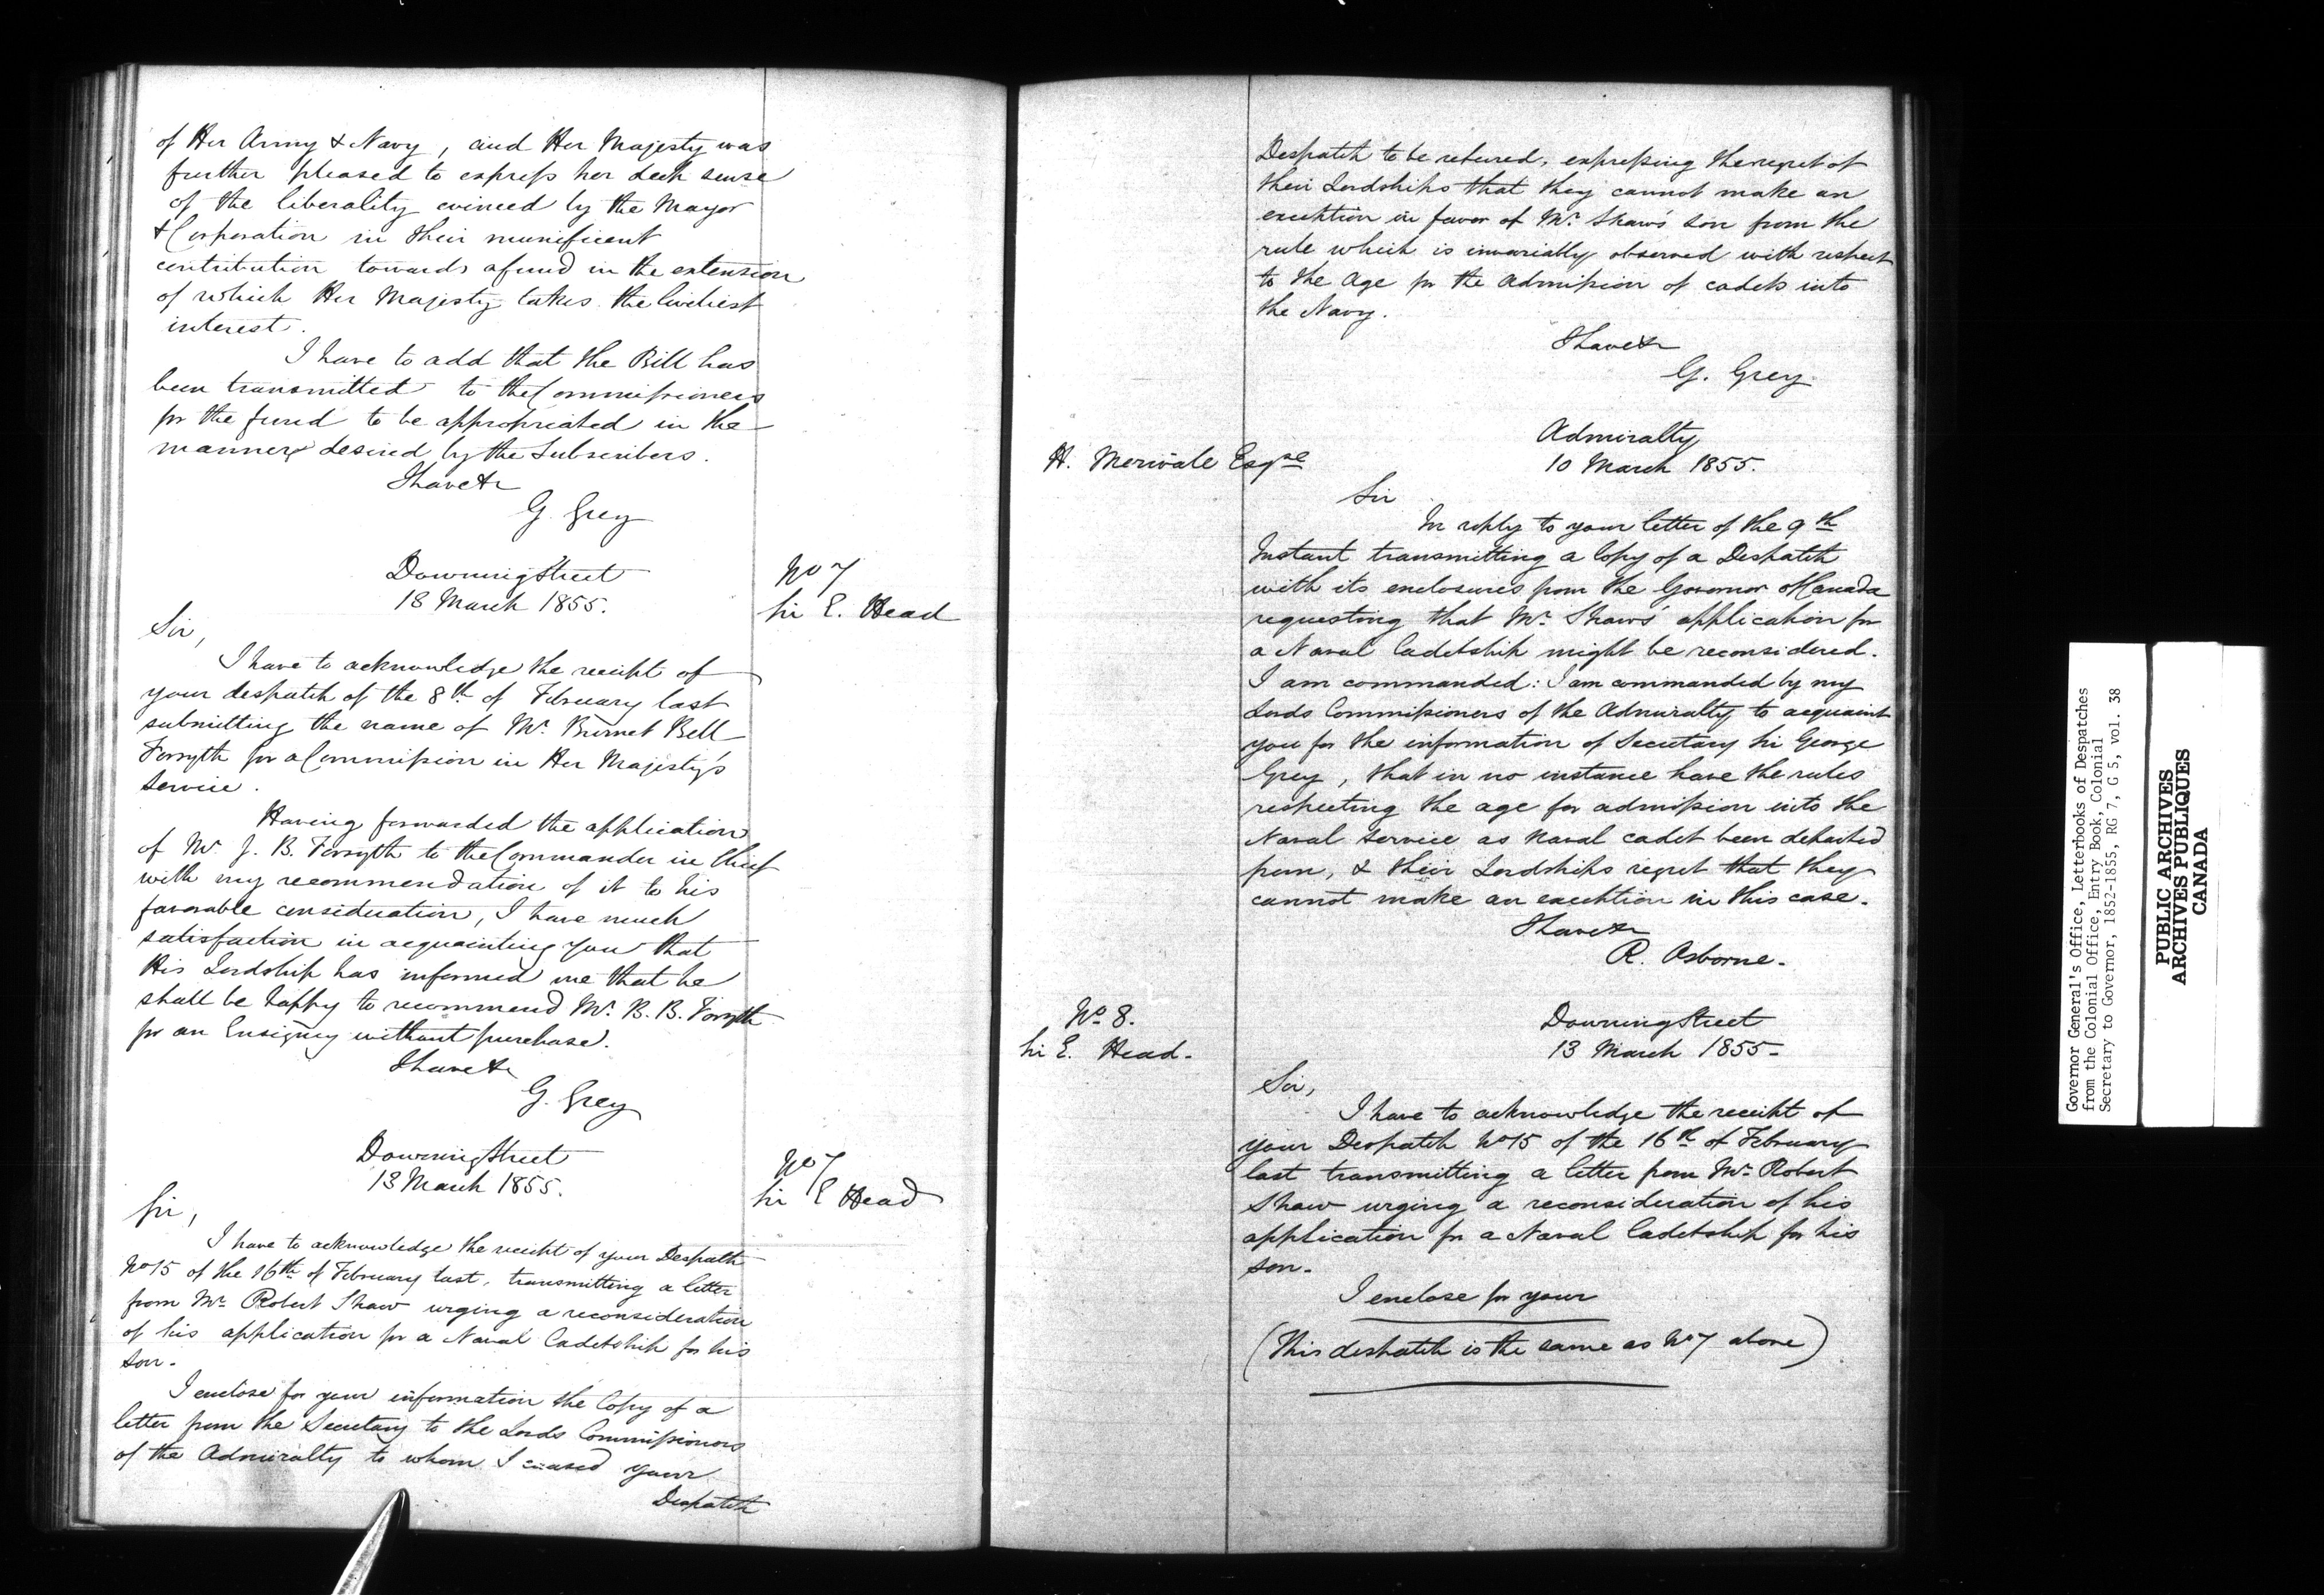 of Her Army & Navy, and Her Majesty was
further pleased to express her deep sense
of the liberality evinced by the Mayor
& Corporation in their munificent
contribution towards a fund in the extension
of which Her Majesty takes the liveliest
interest.
I have to add that the Bill has
been transmitted to the Commissioners
for the fund to be appropriated in the
manner desired by the Subscribers.
I have &c
G. Grey
Downing Street
13 March 1855.
No 7
Sir E. Head
Sir,
I have to acknowledge the receipt of
your despatch of the 8th of February last
submitting the name of Mr. Burnet Bell
Forsyth for a Commission in Her Majesty's
Service.
Having forwarded the application
of Mr. J. B. Forsyth to the Commander in Chief
with my recommendation of it to his
favorable consideration, I have much
satisfaction in acquainting you that
His Lordship has informed me that he
shall be happy to recommend Mr. B. B. Forsyth
for an Ensigncy without purchase.
I have &c
G. Grey
Downing Street
13 March 1855.
No 7
Sir E Head
Sir,
I have to acknowledge the receipt of your Despatch
No 15 of the 16th of February last, transmitting a letter
from Mr. Robert Shaw urging a reconsideration
of his application for a Naval Cadetship for his
son.
I enclose for your information the Copy of a
letter from the Secretary to the Lords Commissioners
of the Admiralty to whom I caused your
Despatch
Despatch to be referred, expressing the regret of
their Lordships that they cannot make an
exception in favor of Mr. Shaw's son from the
rule which is invariably observed with respect
to the Age for the Admission of cadets into
the Navy.
I have &c
G. Grey.
Admiralty
10 March 1855.
H. Merivale Esqre
Sir
In reply to your letter of the 9th
Instant transmitting a Copy of a Despatch
with its enclosures from the Governor of Canada
requesting that Mr. Shaw's application for
a Naval Cadetship might be reconsidered.
I am commanded: I am commanded by my
Lords Commissioners of the Admiralty to acquaint
you for the information of Secretary Sir George
Grey, that in no instance have the rules
respecting the age for admission into the
Naval Service as Naval cadet been departed
from, & their Lordships regret that they
cannot make an exception in this case.
I have &c
R. Osborne.
No. 8.
Sir E. Head.
Downing Street
13 March 1855.
Sir,
I have to acknowledge the receipt of
your Despatch No 15 of the 16th of February
last transmitting a letter from Mr. Robert
Shaw urging a reconsideration of his
application for a Naval Cadetship for his
son.
I enclose for your
(This despatch is the same as No 7 above)
Governor General's Office, Letterbooks of Despatches
from the Colonial Office, Entry Book, Colonial
Secretary to Governor, 1852-1855, RG 7, G 5, vol. 38
PUBLIC ARCHIVES
ARCHIVES PUBLIQUES
CANADA